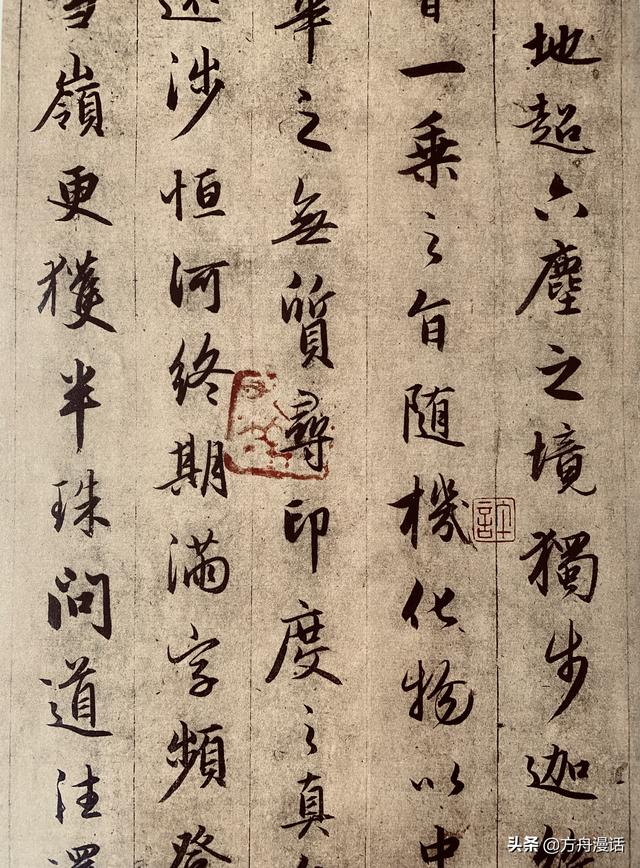 地超六塵之境獨步迦
一乘之旨随機化物以中
華之無質尋印度之真
遠涉恒河終期満字頻登
雪嶺更獲半珠問道往還
头条 @方舟漫话